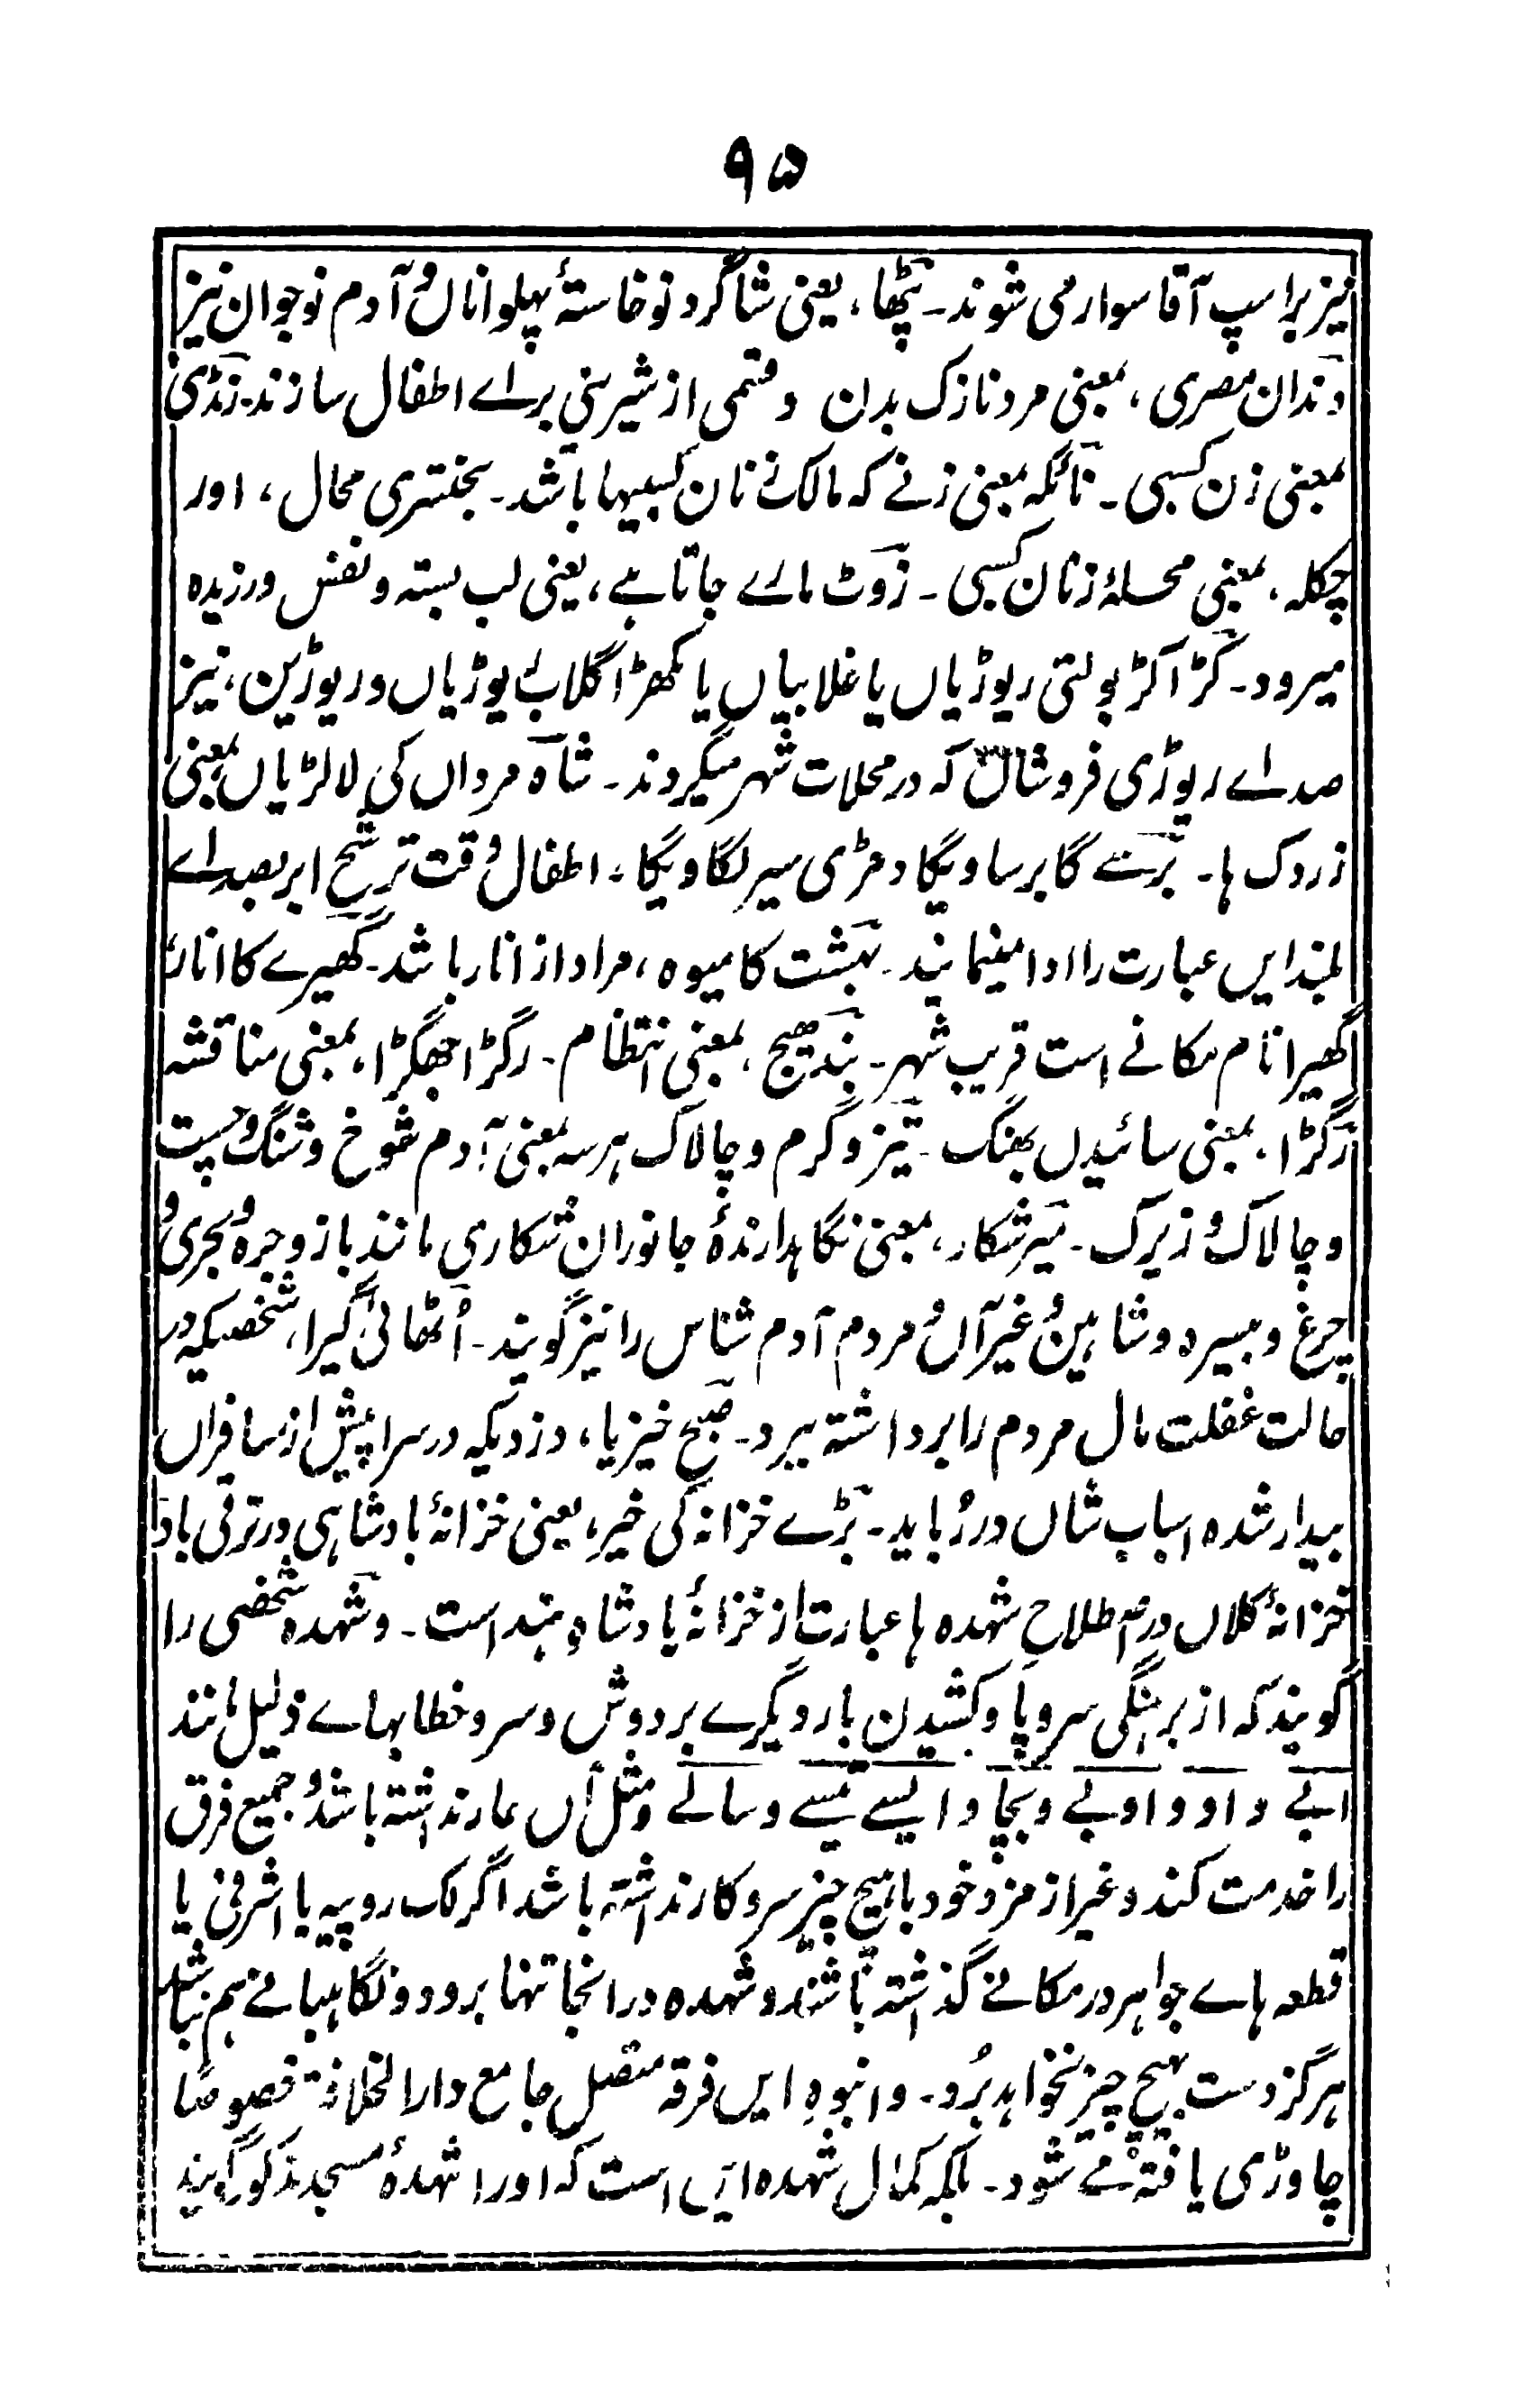 ۹۵
نیز بر اسپ آقا سوار می شوند۔ پٹھا، یعنی شاگرد نوخاستۂ پہلوانان و آدم نوجوان نیز
دندان مصری، بمعنی مرد نازک بدن و قسمی از شیرینی براے اطفال سازند۔ رنڈی
بمعنی زن کسبی۔ نائکہ بمعنی زنے کہ مالک زنان کسبیہا باشد۔ بختری محال، اور
چکلہ، بمعنی محلۂ زنان کسبی۔ زوٹ مارے جاتا ہے، یعنی لب بستہ و نفس ورزیدہ
میرود۔ کڑاکڑ بولتی ریوڑیاں یا غلابیاں یا مکھڑا گلاب ریوڑیاں و ریوڑین، نیز
صداے ریوڑی فروشاں کہ در محلات شہر میگردند۔ شاہ مرداں کی لالڑیاں بمعنی
زردک ہا۔ برسے گا برساویگا دمڑی سیر لگاویگا، اطفال وقت ترشح ابر بصداے
بلند ایں عبارت را ادا مینمایند۔ بہشت کا میوہ، مراد از انار باشد۔ گھیرے کا انار،
گھیرا نام مکانے است قریب شہر۔ بندھیج، بمعنی انتظام۔ رگڑا جھگڑا، بمعنی مناقشہ
رگڑا، بمعنی سائیدن بھنگ۔ تیز و گرم و چالاک ہر سہ بمعنی آدم شوخ و شنگ و چست
و چالاک و زیرک۔ میر شکار، بمعنی نگاہدارندۂ جانوران شکاری مانند باز و جرہ و بحری و
چرغ و بسیرہ و شاہین و غیر آں و مردم آدم شناس را نیز گویند۔ اُٹھائی گیرا، شخصیکہ در
حالت غفلت مال مردم را برداشتہ ببرد۔ صبح خیزیا، دزدیکہ در سرا پیش از مسافراں
بیدار شدہ اسباب شاں در رُباید۔ بڑے خزانہ کی خیر، یعنی خزانۂ بادشاہی در ترقی باد
خزانۂ کلاں در اصطلاحِ شہدہ ہا عبارت از خزانۂ پادشاہِ ہند است۔ و شہدہ شخصی را
گویند کہ از برہنگی سر و پا و کشیدن بار دیگرے بر دوش و سر و خطابہاے ذلیل مانند
ابے و او و اوبے و بچا و ایسے تیسے و سالے و مثل آں عار نداشتہ باشد و جمیع فرق
را خدمت کند و غیر از مزد خود با ہیچ چیز سروکار نداشتہ باشد اگر لک روپیہ یا اشرفی یا
قطعہ ہاے جواہر در مکانے گذاشتہ باشند و شہدہ در انجا تنہا برود و نگاہبانے ہم نباشد
ہرگز دست بہیچ چیز نخواہد بُرد۔ و انبوہِ ایں فرقہ متصل جامع دارالخلافۃ خصوصًا
چاوڑی یافتہ مے شود۔ بلکہ کمال شہدہ ایں است کہ اورا شہدۂ مسجد مذکور گویند